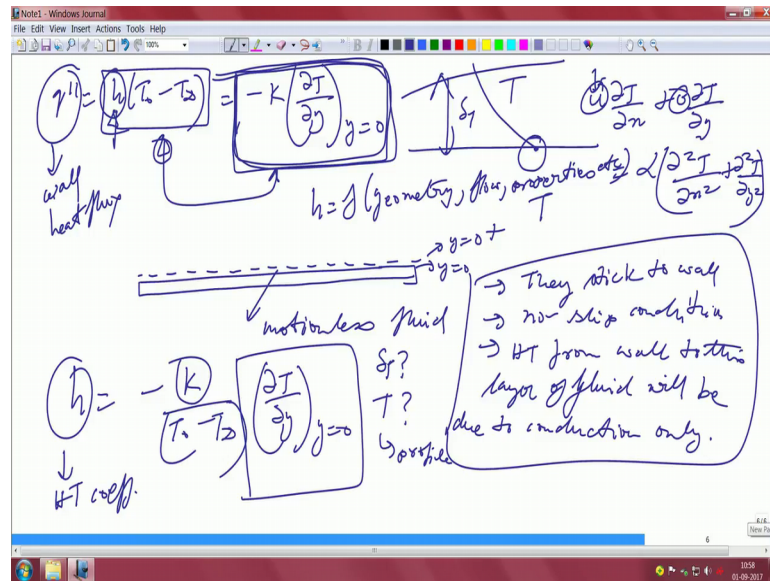 Note1 - Windows Journal
File Edit View Insert Actions Tools Help
100%
q'' = h (T₀ - T∞) = -K (∂T/∂y) y=0
δT
T
u ∂T/∂x + v ∂T/∂y
wall
heat flux
h = f (geometry, flow, properties etc) α (∂²T/∂x² + ∂²T/∂y²)
T
y=0+
y=0
motionless fluid
→ They stick to wall
→ no slip condition
→ HT from wall to this
layer of fluid will be
due to conduction only.
h = - K / (T₀ - T∞) (∂T/∂y) y=0
δT?
T?
↳ profile
HT coeff.
6/6
New Pa
6
10:58
01-09-2017